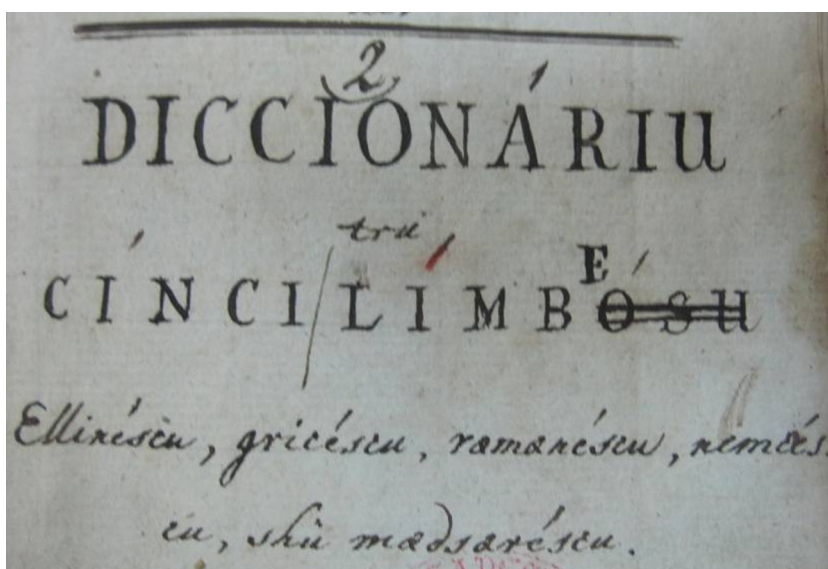 2
DICCIONÁRIU
tru
CÍNCILÍMBÓSU
E
Ellinéscu, gricéscu, ramanéscu, nemțés
cu, shi madsaréscu.